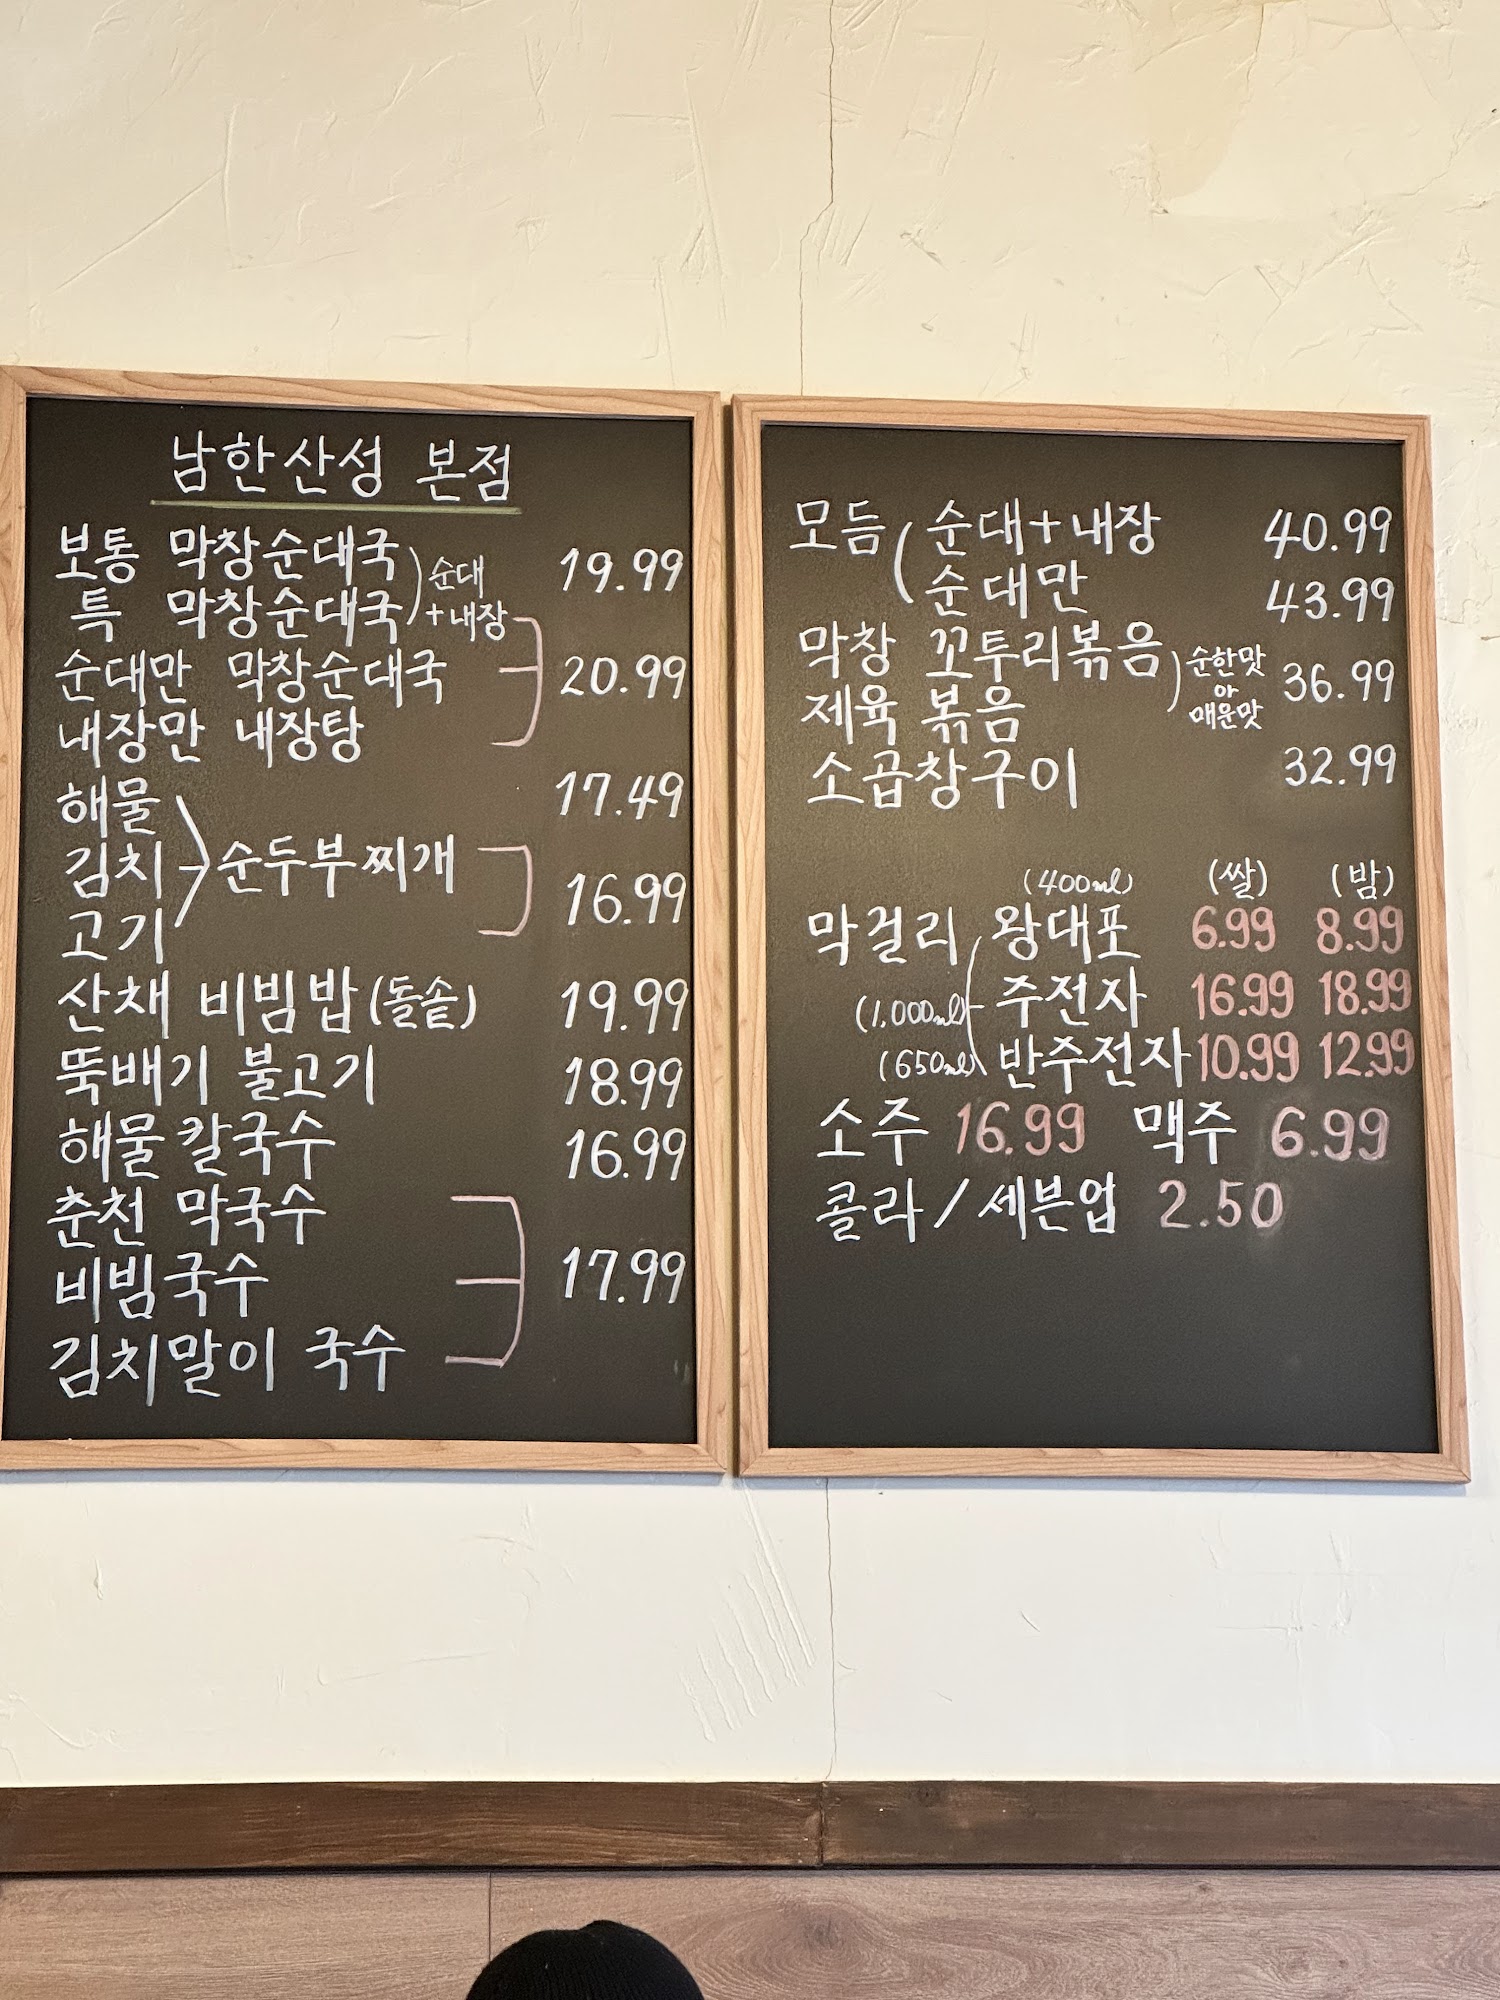 남한산성 본점
보통 막창순대국 19.99
특 막창순대국
순대
+내장
순대만 막창순대국 20.99
내장만 내장탕
해물 17.49
김치 순두부찌개 16.99
고기
산채 비빔밥(돌솥) 19.99
뚝배기 불고기 18.99
해물칼국수 16.99
춘천 막국수
비빔국수 17.99
김치말이 국수
모듬 순대+내장 40.99
순대만 43.99
막창 꼬투리볶음
제육 볶음
순한맛
or
매운맛
36.99
소곱창구이 32.99
(400ml) (쌀) (밤)
막걸리 왕대포 6.99 8.99
(1,000ml) 주전자 16.99 18.99
(650ml) 반주전자 10.99 12.99
소주 16.99 맥주 6.99
콜라/세븐업 2.50